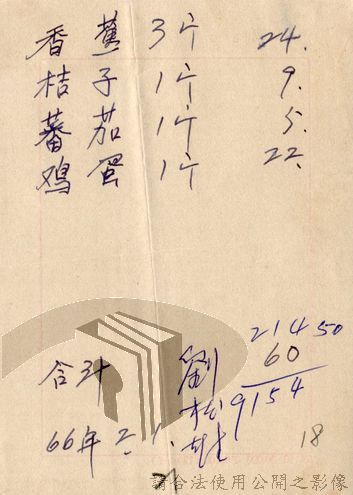 香蕉 3斤 24.
桔子 1斤 9.
蕃茄 1斤 5.
鸡蛋 1斤 22.
214 50
60
9154
合计
劉松
66年2.1.
18
請合法使用公開之影像